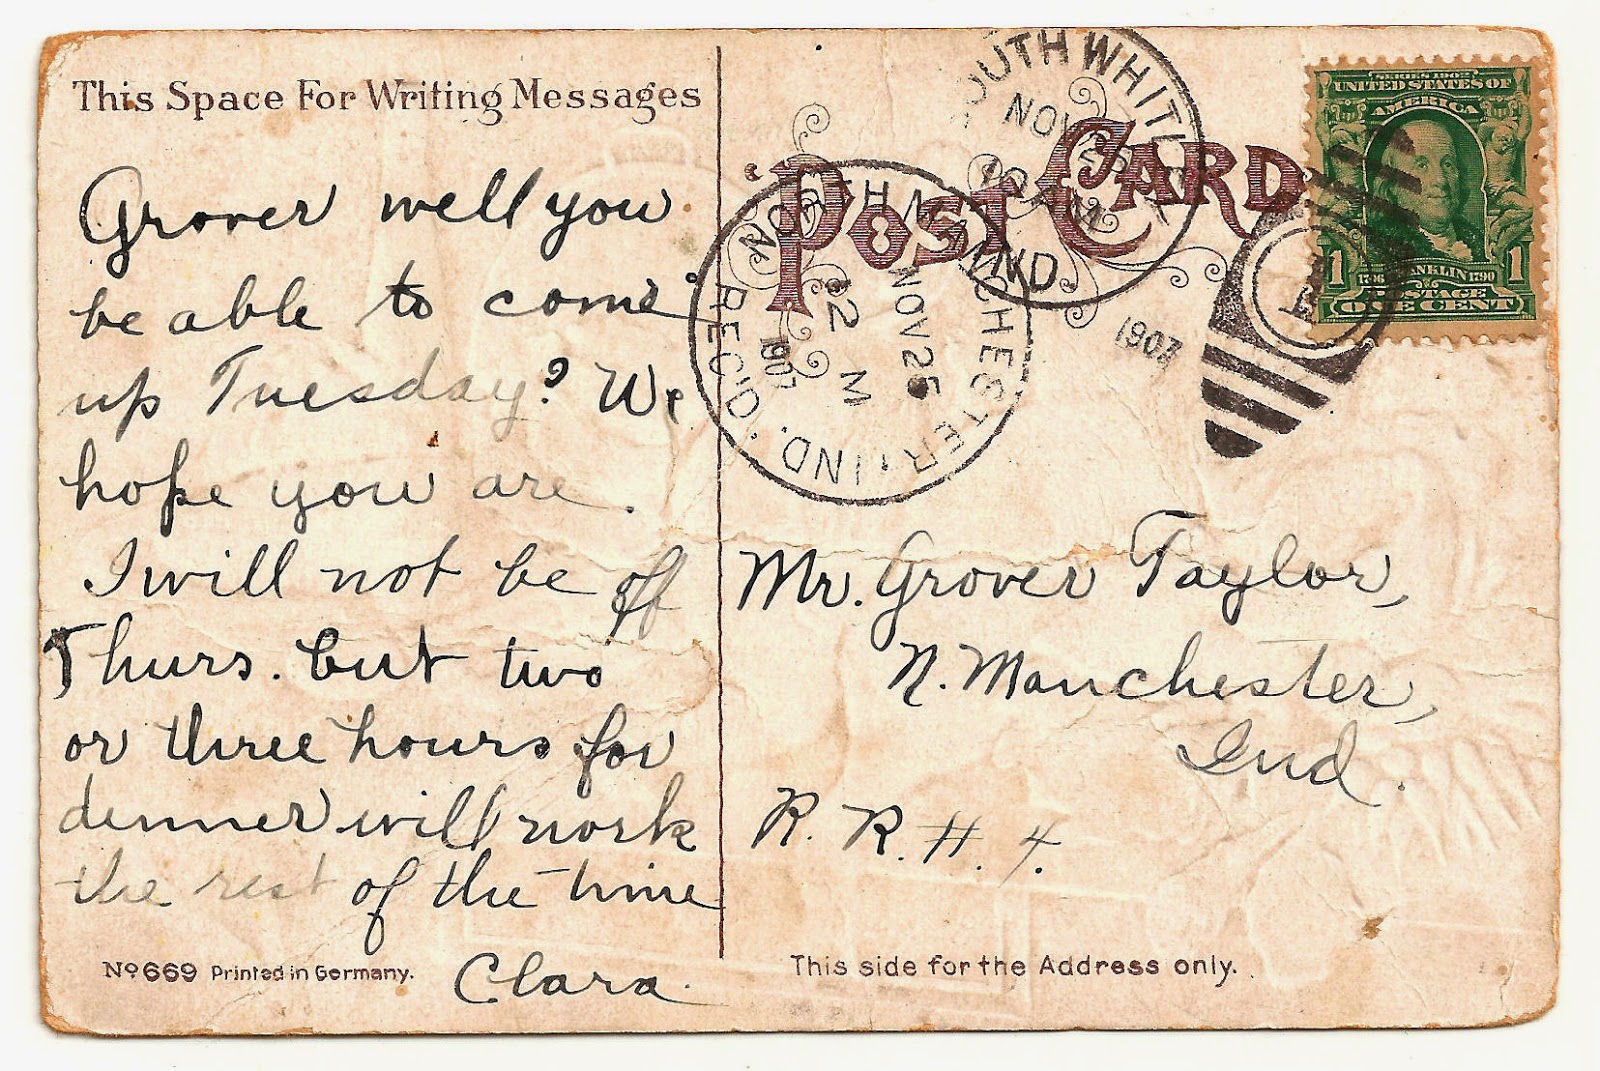 This Space For Writing Messages
Grover well you
be able to come
up Tuesday? We
hope you are.
I will not be off
Thurs. but two
or three hours for
dinner will work
the rest of the time
Clara.
No 669 Printed in Germany.
POST CARD
SOUTH WHITLEY
NOV 25
IND.
1907
NORTH MANCHESTER, IND.
NOV 25
12 M
1907
REC'D.
SERIES 1902
UNITED STATES OF
AMERICA
1706 FRANKLIN 1790
1 POSTAGE 1
ONE CENT
Mr. Grover Taylor,
N. Manchester,
Ind.
R. R. #. 4.
This side for the Address only.